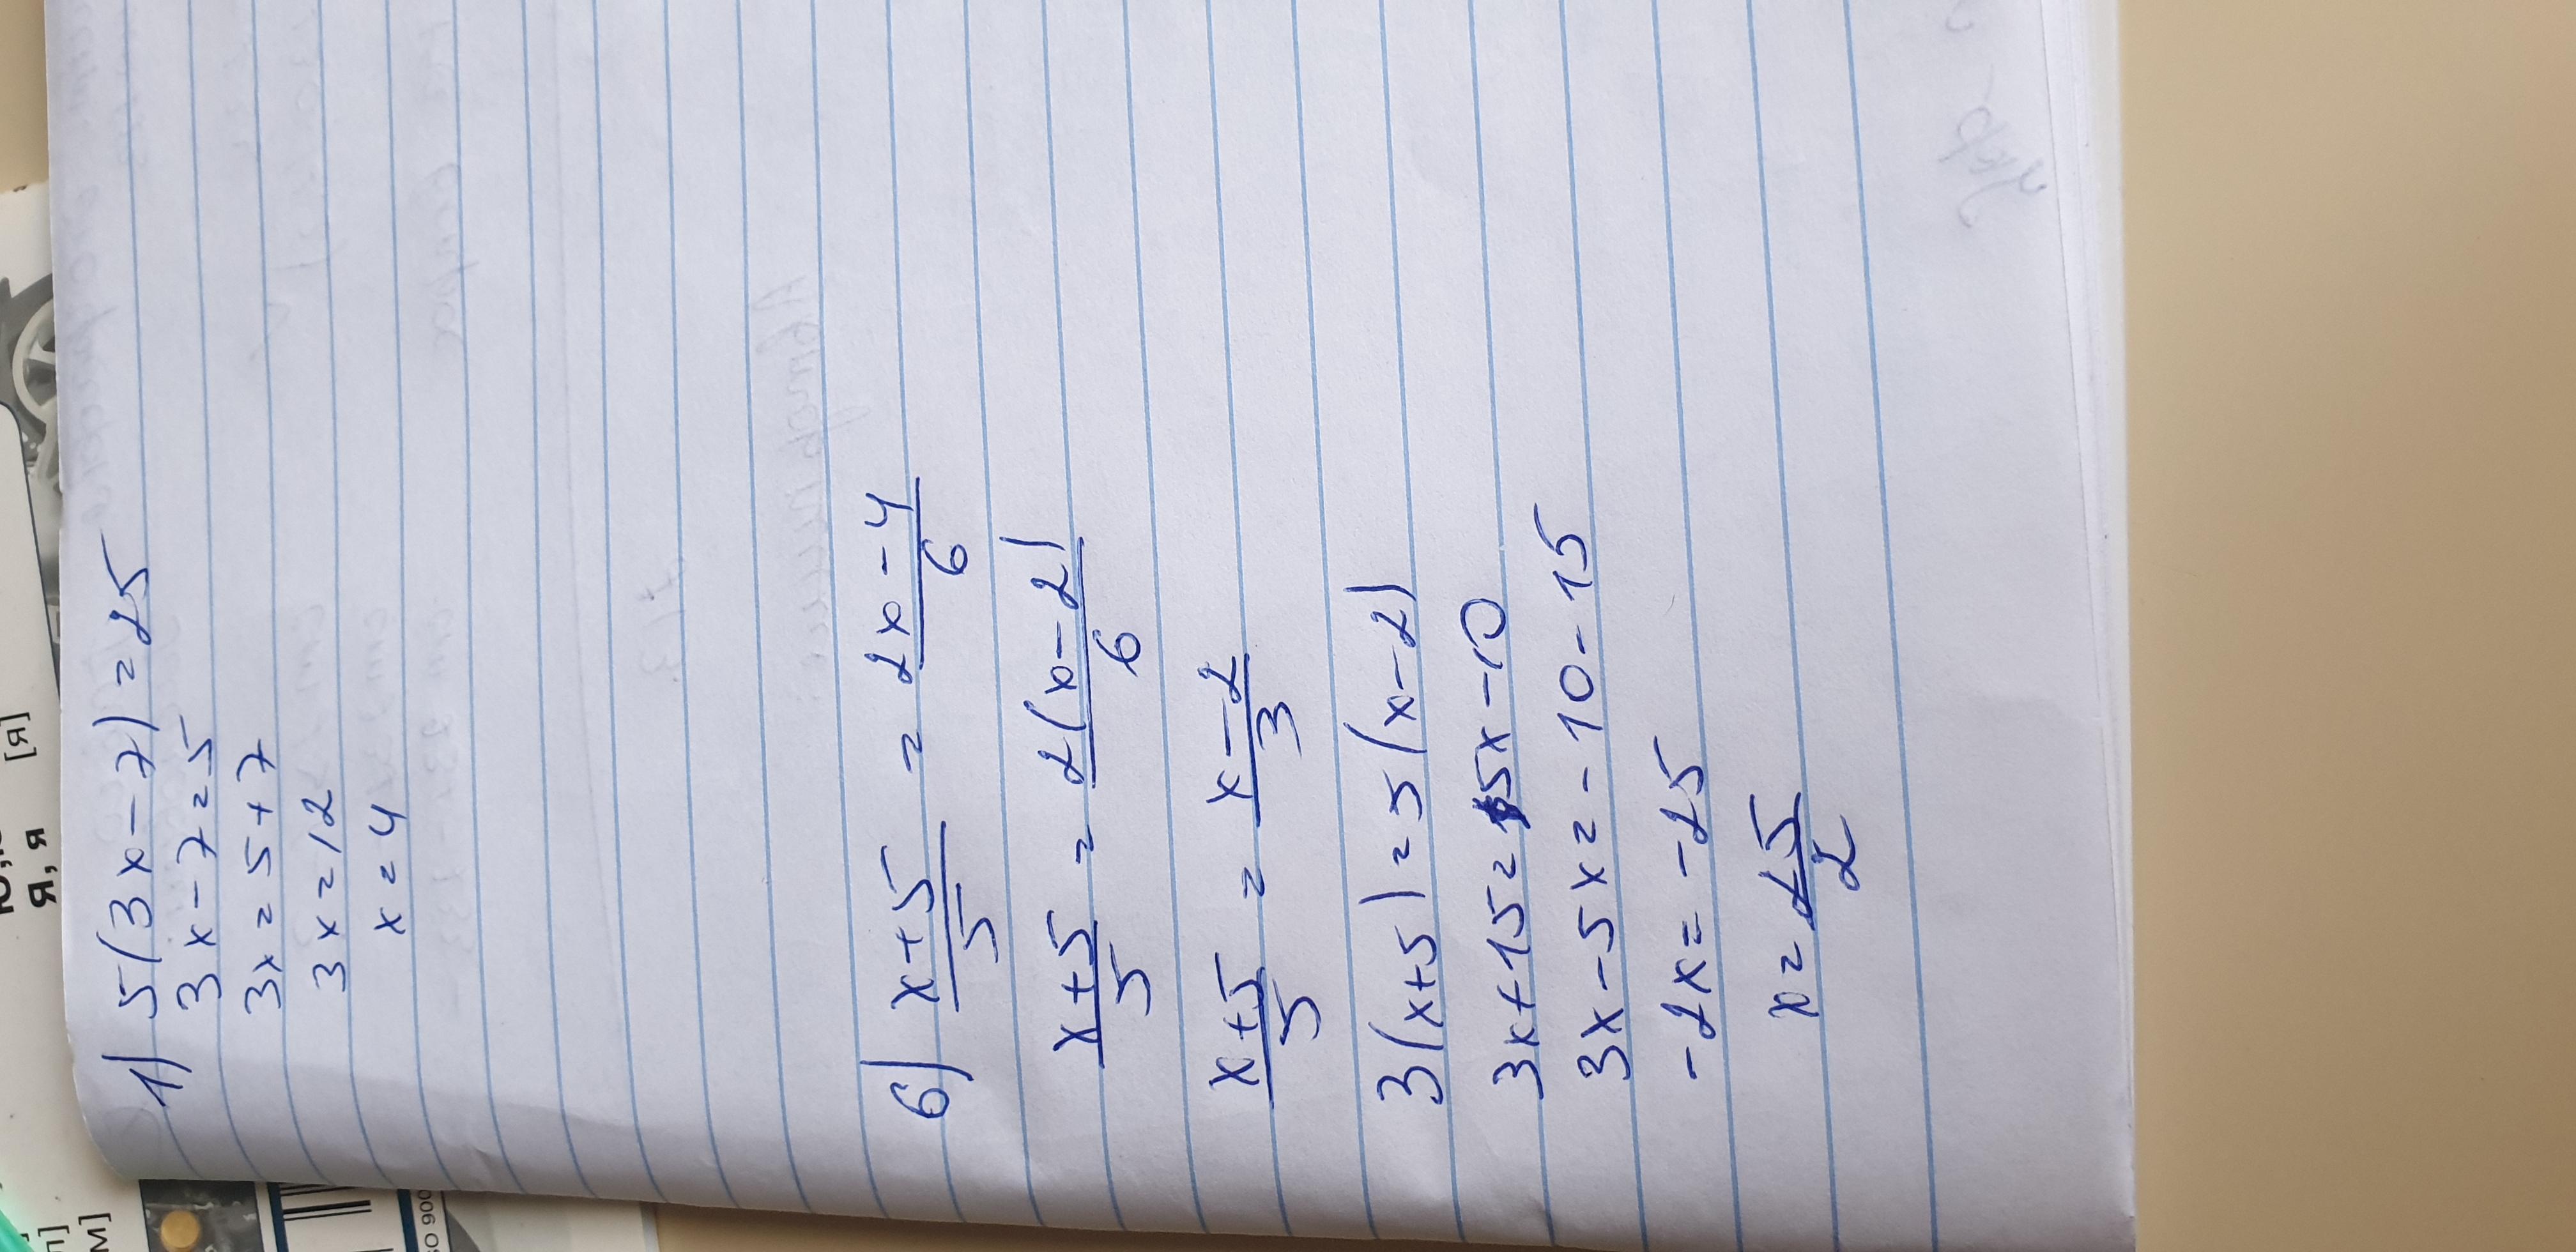 1) 5(3x-7)=25
3x-7=5
3x=5+7
3x=12
x=4
6) \frac{x+5}{5} = \frac{2x-4}{6}
\frac{x+5}{5} = \frac{2(x-2)}{6}
\frac{x+5}{5} = \frac{x-2}{3}
3(x+5)=5(x-2)
3x+15=5x-10
3x-5x=-10-15
-2x=-25
x=\frac{25}{2}
Я, я [я]